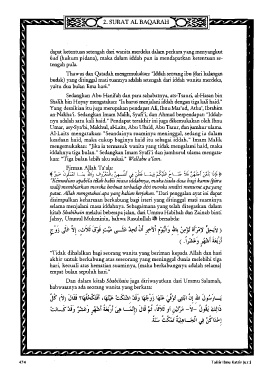 2. SURAT AL BAQARAH
dapat ketentuan setengah dari wanita merdeka dalam perkara yang menyangkut
had (hukum pidana), maka dalam iddah pun ia mendapatkan ketentuan se-
tengah pula.
Thawus dan Qatadah mengemukakan: "Iddah seorang ibu (dari kalangan
budak) yang ditinggal mati suaminya adalah setengah dari iddah wanita merdeka,
yaitu dua bulan lima hari."
Sedangkan Abu Hanifah dan para sahabatnya, ats-Tsauri, al-Hasan bin
Shalih bin Huyay mengatakan: "Ia harus menjalani iddah dengan tiga kali haid."
Yang demikian itu juga merupakan pendapat Ali, Ibnu Mas'ud, Atha', Ibrahim
an-Nakha'i. Sedangkan Imam Malik, Syafi'i, dan Ahmad berpendapat: "Iddah-
nya adalah satu kali haid." Pendapat terakhir ini juga dikemukakan oleh Ibnu
Umar, asy-Sya'bi, Makhul, al-Laits, Abu Ubaid, Abu Tsaur, dan jumhur ulama.
Al-Laits mengatakan: "Seandainya suaminya meninggal, sedang ia dalam
keadaan haid, maka cukup baginya haid itu sebagai iddah." Imam Malik
mengemukakan: "Jika ia termasuk wanita yang tidak mengalami haid, maka
iddahnya tiga bulan." Sedangkan Imam Syafi'i dan jumhurul ulama mengata-
kan: "Tiga bulan lebih aku sukai." Wallahu a'lam.
Firman Allah Ta'ala:
"Kemudian apabila telah habis masa iddahnya, maka tiada dosa bagi kamu (para
wali) membiarkan mereka berbuat terhadap diri mereka sendiri menurut apa yang
patut. Allah mengetahui apa yang kamu kerjakan." Dari penggalan ayat ini dapat
disimpulkan keharusan berkabung bagi isteri yang ditinggal mati suaminya
selama menjalani masa iddahnya. Sebagaimana yang telah ditegaskan dalam
kitab Shahihain melalui beberapa jalan, dari Ummu Habibah dan Zainab binti
Jahsy, Ummul Mukminin, bahwa Rasulullah bersabda:
"Tidak dihalalkan bagi seorang wanita yang beriman kepada Allah dan hari
akhir untuk berkabung atas seseorang yang meninggal dunia melebihi tiga
hari, kecuali atas kematian suaminya, (maka berkabungnya adalah selama)
empat bulan sepuluh hari."
Dan dalam kitab Shahihain juga diriwayatkan dari Ummu Salamah,
bahwasanya ada seorang wanita yang berkata:
474
Tafsir Ibnu Katsir Juz 2